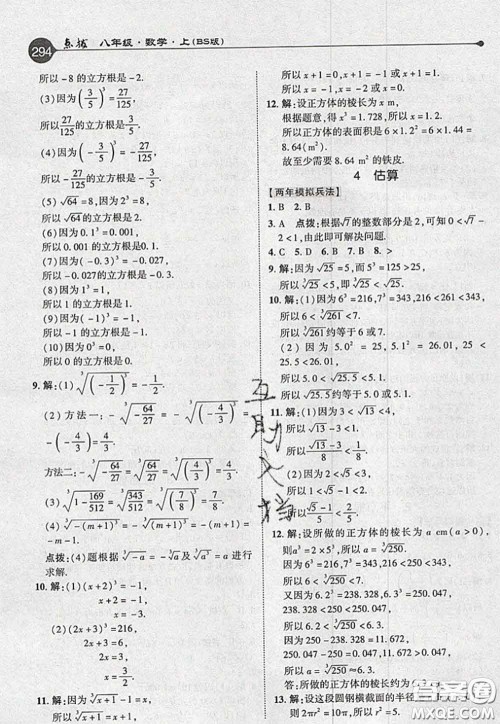 294 点拨 八年级·数学·上(BS版)
所以-8的立方根是-2.
(3)因为(3/5)³=27/125,
所以27/125的立方根是3/5.
(4)因为(-3/5)³=-27/125,
所以-27/125的立方根是-3/5.
(5)√64=8,因为2³=8,
所以√64的立方根是2.
(6)因为0.1³=0.001,
所以0.001的立方根是0.1.
(7)因为(-0.2)³=-0.008,
所以-0.008的立方根是-0.2.
(8)因为(-3)³=-27,
所以-27的立方根是-3.
(9)因为1³=1,
所以1的立方根是1.
(10)因为0³=0,
所以0的立方根是0.
9. 解:(1)∛((-1/2)³)=-1/2.
(2)方法一:∛(-64/27)=
∛((-4/3)³)=-4/3.
方法二:∛(-64/27)=-∛(64/27)=-∛((4/3)³)=-4/3.
(3)∛(1-169/512)=∛(343/512)=∛((7/8)³)=7/8.
(4)∛(-(m+1)³)=-∛((m+1)³)=
-(m+1).
点拨:(4)题根据∛(-a)=-∛a及∛(a³)=a进行
求解.
10. 解:(1)(x+2)³=-1,
x+2=-1,
x=-3.
(2)2(x+3)³=
(2x+3)³=216,
2x+3=6,
2x=3,
x=3/2.
11. 解:因为∛(x+1)-1=x,
所以∛(x+1)=x+1.
所以x+1=0,x+1=1或x+1=-1.
所以x=-1,x=0或x=-2.
12. 解:设正方体的棱长为x m,
根据题意,得x³=1.728,所以x=1.2.
所以正方体的表面积是6×1.2²=6×1.44=
8.64(m²).
故至少需用8.64 m²的铁皮.
4 估算
【两年模拟兵法】
1. B 2. B
3. A 点拨:根据√7的整数部分是2,可知0<√7-
2<1,由此即可解决问题.
4. C 5. D 6. B 7. B 8. >
9. 解:因为√25=5,而5<√25.5,
所以∛25<5<√25.5.
10. 解:(1)因为6³=216,7³=343,216<261<343,
所以6<∛261<7.
所以∛261约等于6或7.
(2)因为5.0²=25,5.1²=26.01,25<25.5<26.01,
所以5.0<√25.5<5.1.
所以√25.5约等于5.0或5.1.
11. 解:(1)因为3<√13<4,
所以√13-3<1.
所以(√13-3)/8<1/8.
(2)因为2<√5<3,
所以√5-1<2.
所以(√5-1)/5<2/5.
12. 解:设所做的正方体的棱长为a cm(a>0),
则a³=250,所以a=∛250.
因为6³=216,7³=343,216<250<343,
所以6<∛250<7.
因为6.2³=238.328,6.3³=250.047,
238.328<250<250.047,
所以6.2<∛250<6.3.
所以∛250约等于6.3.
所以a约等于6.3.
答:所做的正方体的棱长约为6.3 cm.
13. 解:设这段圆钢横截面的半径
互助文档